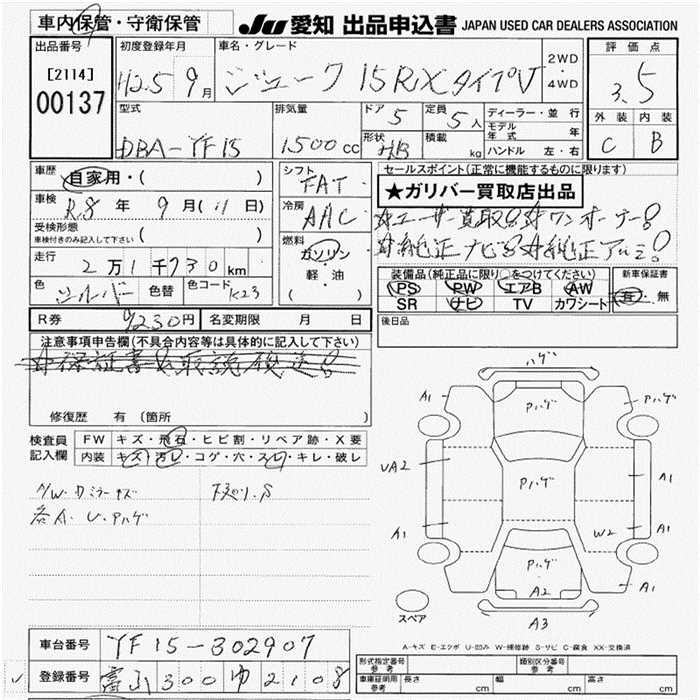 車内保管・守衛保管
JU 愛知 出品申込書 JAPAN USED CAR DEALERS ASSOCIATION
出品番号 初度登録年月 車名・グレード 2WD・4WD 評価点
[2114] 00137 H25 9月 ジューク 15RXタイプV 3.5
型式 排気量 ドア 5 定員 5人 ディーラー・並行 外装 内装
DBA-YF15 1500cc 形状 HB 積載 kg モデル年式 年 C B
ハンドル 左・右
車歴 自家用・( ) シフト FAT セールスポイント(正常に機能するものに限ります)
★ガリバー買取店出品
車検 R8年 9月(11日) 冷房 AAC ☆ユーザー買取!!☆ワンオーナー!
受検形態 車検付きのみ記入して下さい ( ) 燃料 ガソリン・軽・油 ( ) ☆純正ナビ!!☆純正アルミ!
走行 2万1千730km 装備品(純正品に限り○をつけてください) 新車保証書
色 シルバー 色替 色コード K23 PS PW エアB AW 有・無
SR ナビ TV カワシート
R券 9230円 名変期限 月 日 後日品
注意事項申告欄(不具合内容等は具体的に記入して下さい)
☆保証書&取説後送!!
修復歴 有(箇所 )
検査員記入欄 FW キズ・飛石・ヒビ割・リペア跡・X要
内装 キズ・汚レ・コゲ・穴・スレ・キレ・破レ
A/W・カミラーキズ 下廻り.S
各A.U.Pハゲ
ハゲ
A1 Pハゲ Pハゲ
UA2 Pハゲ A1
A1 W2 A1
Pハゲ A1
A2
スペア A3
A-キズ E-エクボ U-凹み W-補修跡 S-サビ C-腐食 XX-交換済
車台番号 YF15-302907
登録番号 富山300ゆ2108
形式指定番号 参考 類別区分番号 参考
車庫証明用 参考 長さ cm 幅 cm 高さ cm